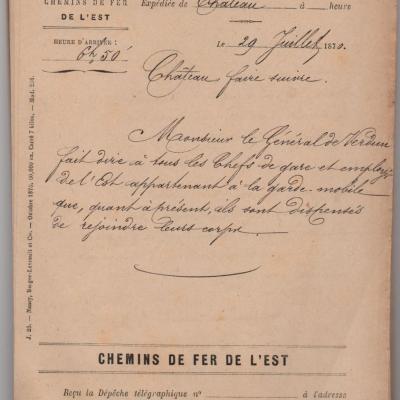 CHEMINS DE FER
DE L'EST
Expédiée de Château à heure
HEURE D'ARRIVÉE :
6h 50'
Le 29 Juillet 1870.
Château faire suivre.
Monsieur le Général de Verdun
fait dire à tous les Chefs de gare et employés
de l'Est appartenant à la garde-mobile
que, quant à présent, ils sont dispensés
de rejoindre leurs corps.
J. 25. — Nancy, Berger-Levrault et Cie. — Octobre 1870.
CHEMINS DE FER DE L'EST
Reçu la Dépêche télégraphique n° à l'adresse